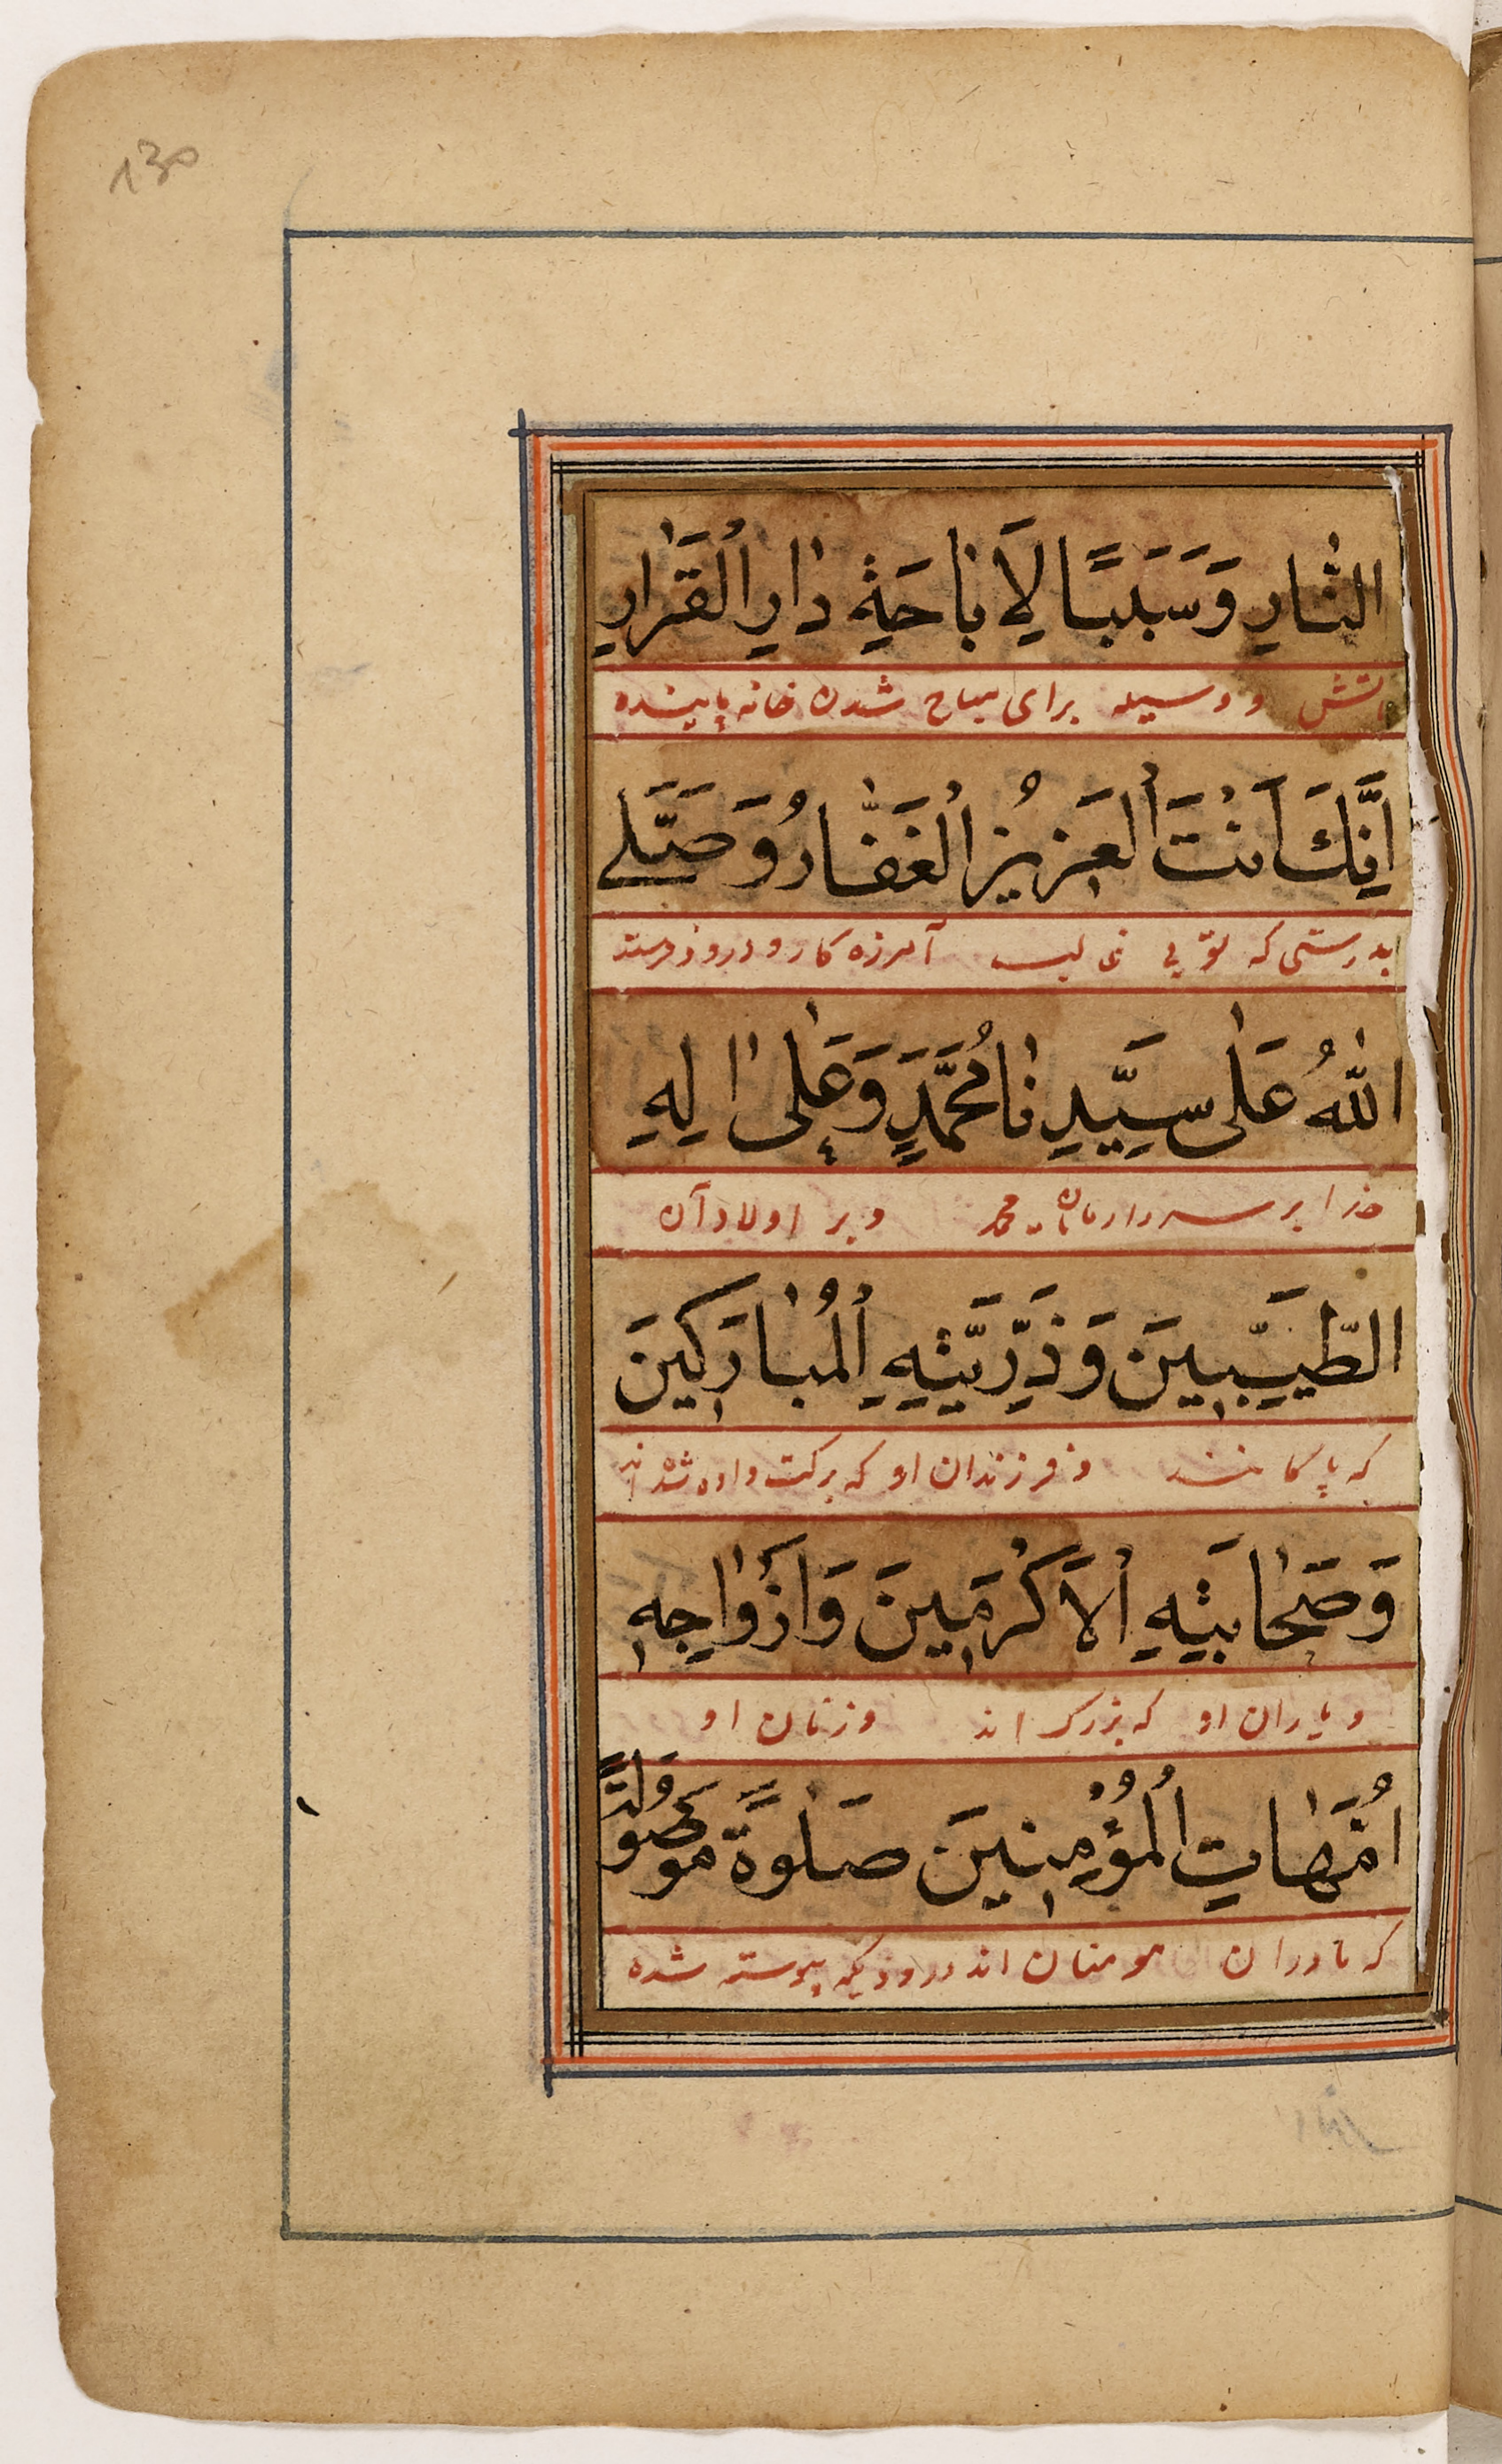 130
النَّارِ وَسَبَبًا لِاَبَاحَةِ دَارِ الْقَرَارِ
آتش و وسیله برای مباح شدن خانه پاینده
اِنَّكَ اَنْتَ الْعَزِيزُ الْغَفَّارُ وَصَلَّى
بدرستی که تویی غالب آمرزه کار و درود فرستد
اللهُ عَلَى سَيِّدِنَا مُحَمَّدٍ وَعَلَى اٰلِهِ
خدا بر سردار مایان محمد و بر اولاد آن
الطَّيِّبِينَ وَذُرِّيَّتِهِ الْمُبَارَكِينَ
که پاکانند و فرزندان او که برکت داده شده اند
وَصَحَابَتِهِ الْاَكْرَمِينَ وَاَزْوَاجِهِ
و یاران او که بزرگ اند و زنان او
اُمَّهَاتِ الْمُؤْمِنِينَ صَلٰوةً مَوْصُولَةً
که مادران مومنان اند درودیکه پیوسته شده